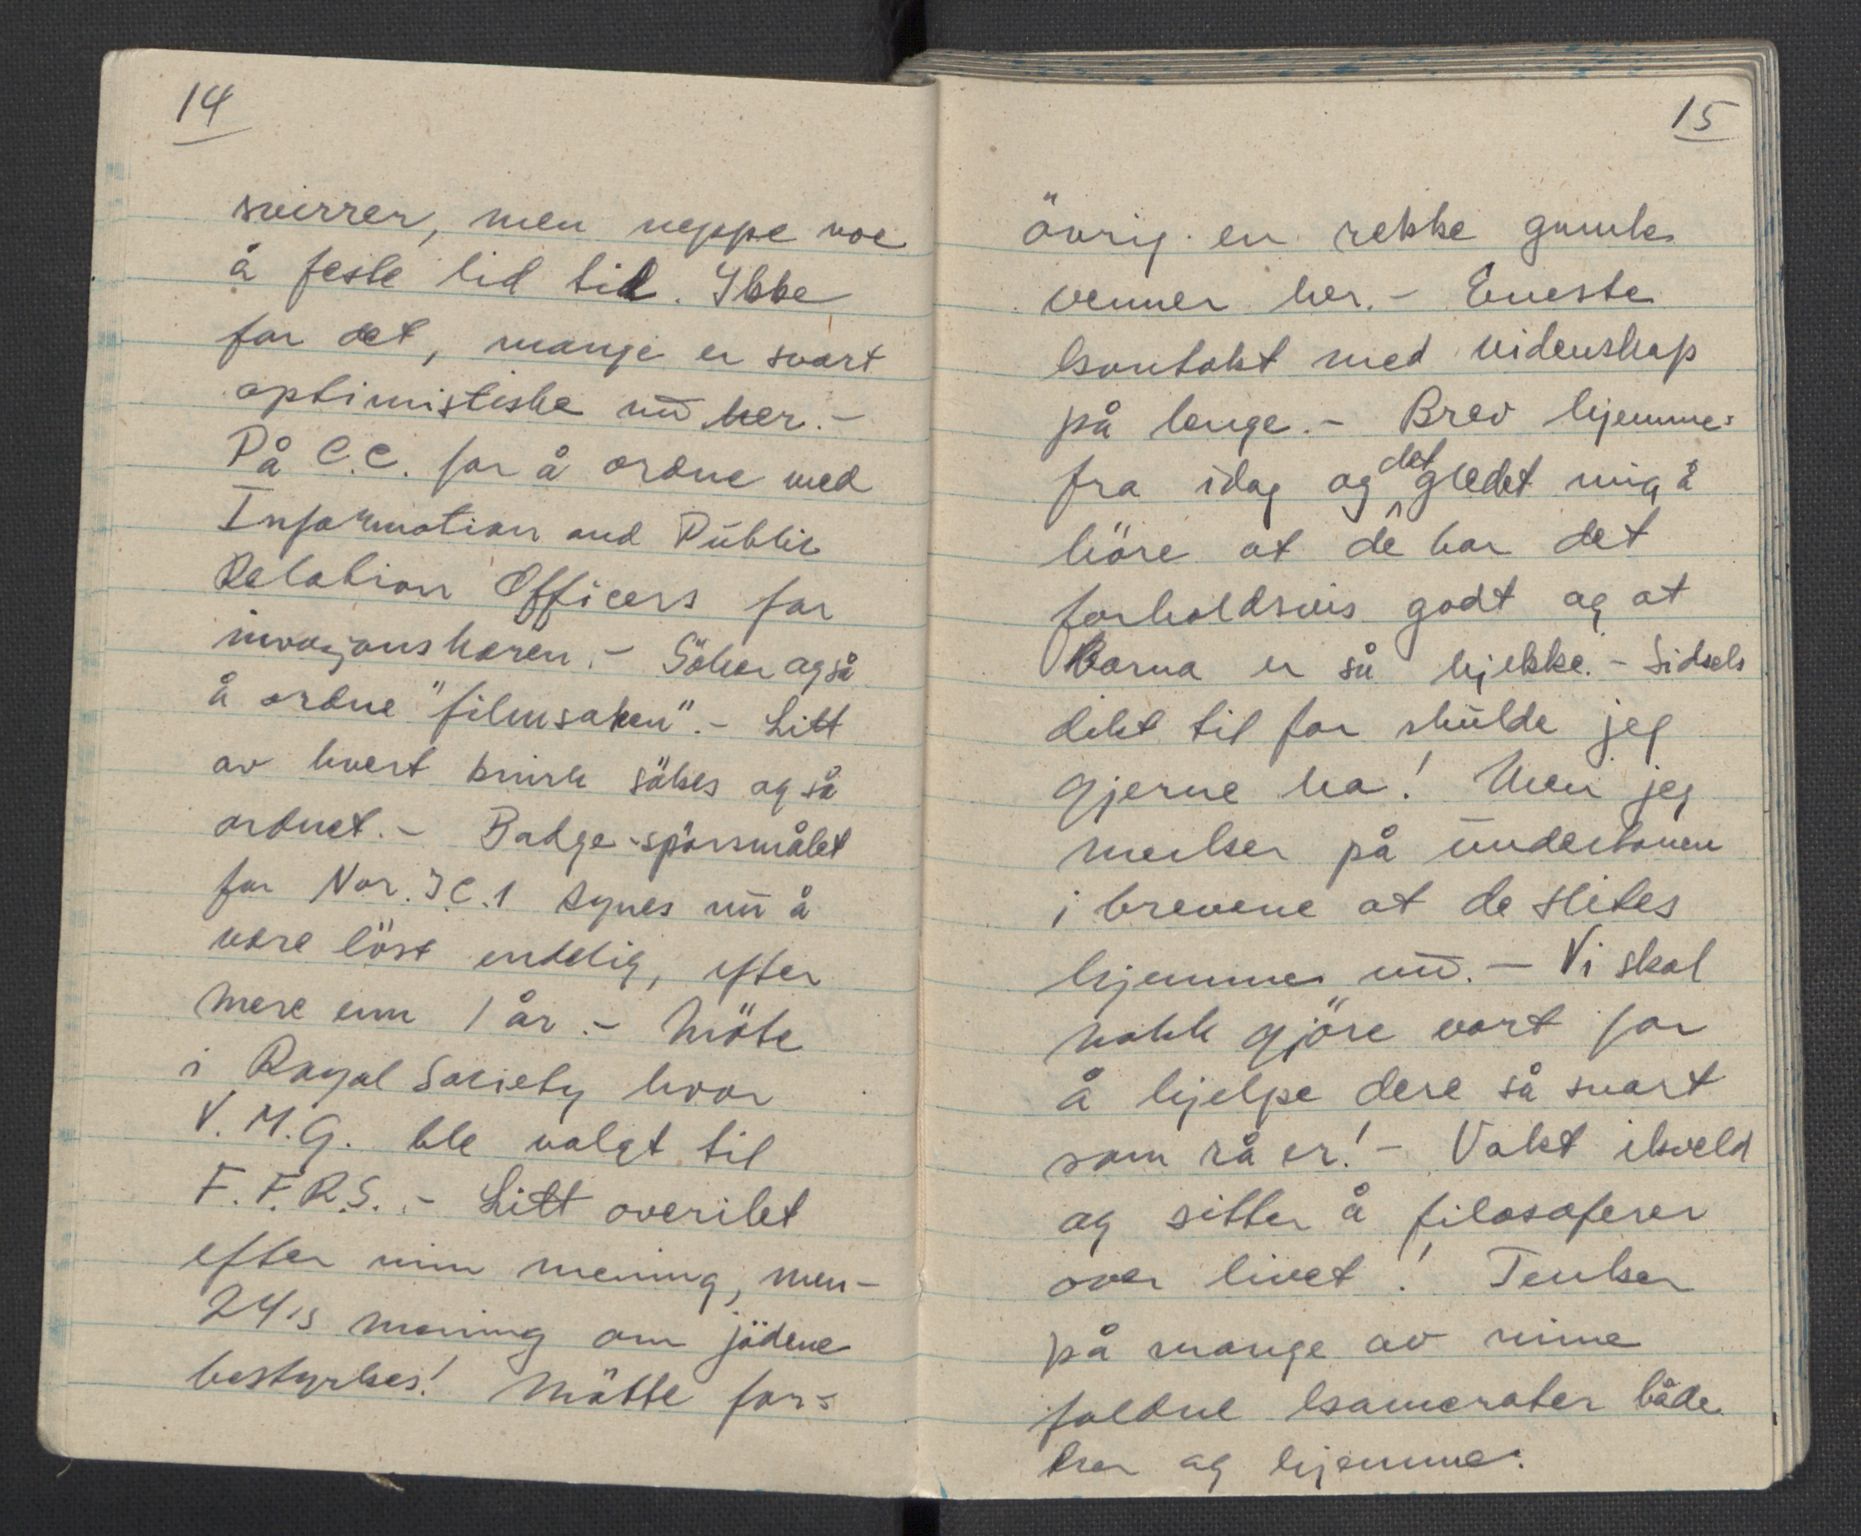 14
svirrer, men neppe noe
å feste lid til. Ikke
for det, mange er svært
optimistiske nu her. -
På C.C. for å ordne med
Information and Public
Relation Officers for
invasjonshæren. - Söker også
å ordne "filmsaken". - Litt
av hvert sökes også
ordnet. - Badge-spörsmålet
for Nor. I.C.1 synes nu å
være löst endelig, efter
mere enn 1 år. - Möte
i Royal Society hvor
V.M.G. ble valgt til
F.F.R.S. - Litt overilet
efter min mening, men -
24's mening om jödene
bestyrkes! Mötte for=
15
övrig en rekke gamle
venner her. - Eneste
kontakt med videnskap
på lenge. - Brev hjemme=
fra idag og det gledet mig å
höre at de har det
forholdsvis godt og at
Barna er så kjekke. - Sidsels
dikt til far skulde jeg
gjerne ha! Men jeg
merker på undertonen
i brevene at de slites
hjemme nu. - Vi skal
nokk gjöre vort for
å hjelpe dere så snart
som rå er! - Vakt ikveld
og sitter å filosoferer
over livet! Tenker
på mange av mine
faldne kamerater både
her og hjemme.